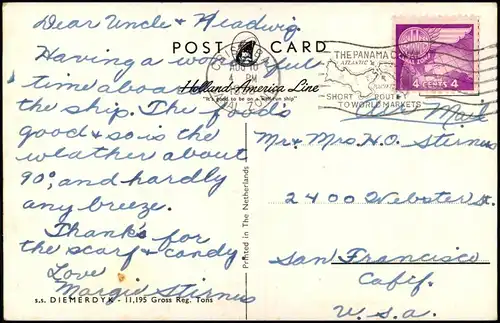 Dear Uncle & Headwig.
Having a wonderful
time aboard
the ship. The food's
good & so is the
weather about
90°, and hardly
any breeze.
Thank's for
the scarf & candy
Love
Margie Stirnus
s.s. DIEMERDYK - 11,195 Gross Reg. Tons
POST CARD
Holland-America Line
"It's good to be on a well-run ship"
Printed in The Netherlands
AUG 10
4 PM
THE PANAMA
ATLANTIC
SHORT ROUTE
TO WORLD MARKETS
CANAL ZONE
4 CENTS 4
Air Mail
Mr. & Mrs. H.O. Stirnus
2400 Webster St.
San Francisco
Calif.
U.S.A.